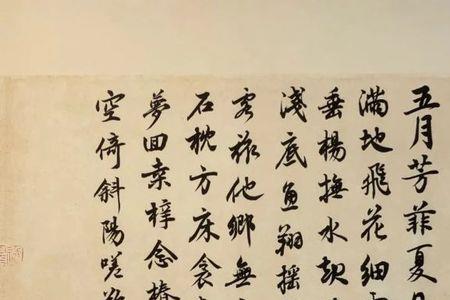 五月芳菲夏
满地飛花細
垂楊撫水
淺底魚翔摇
客旅他鄉無
石枕方床衾
夢回桑梓念椿
空倚斜陽嗟